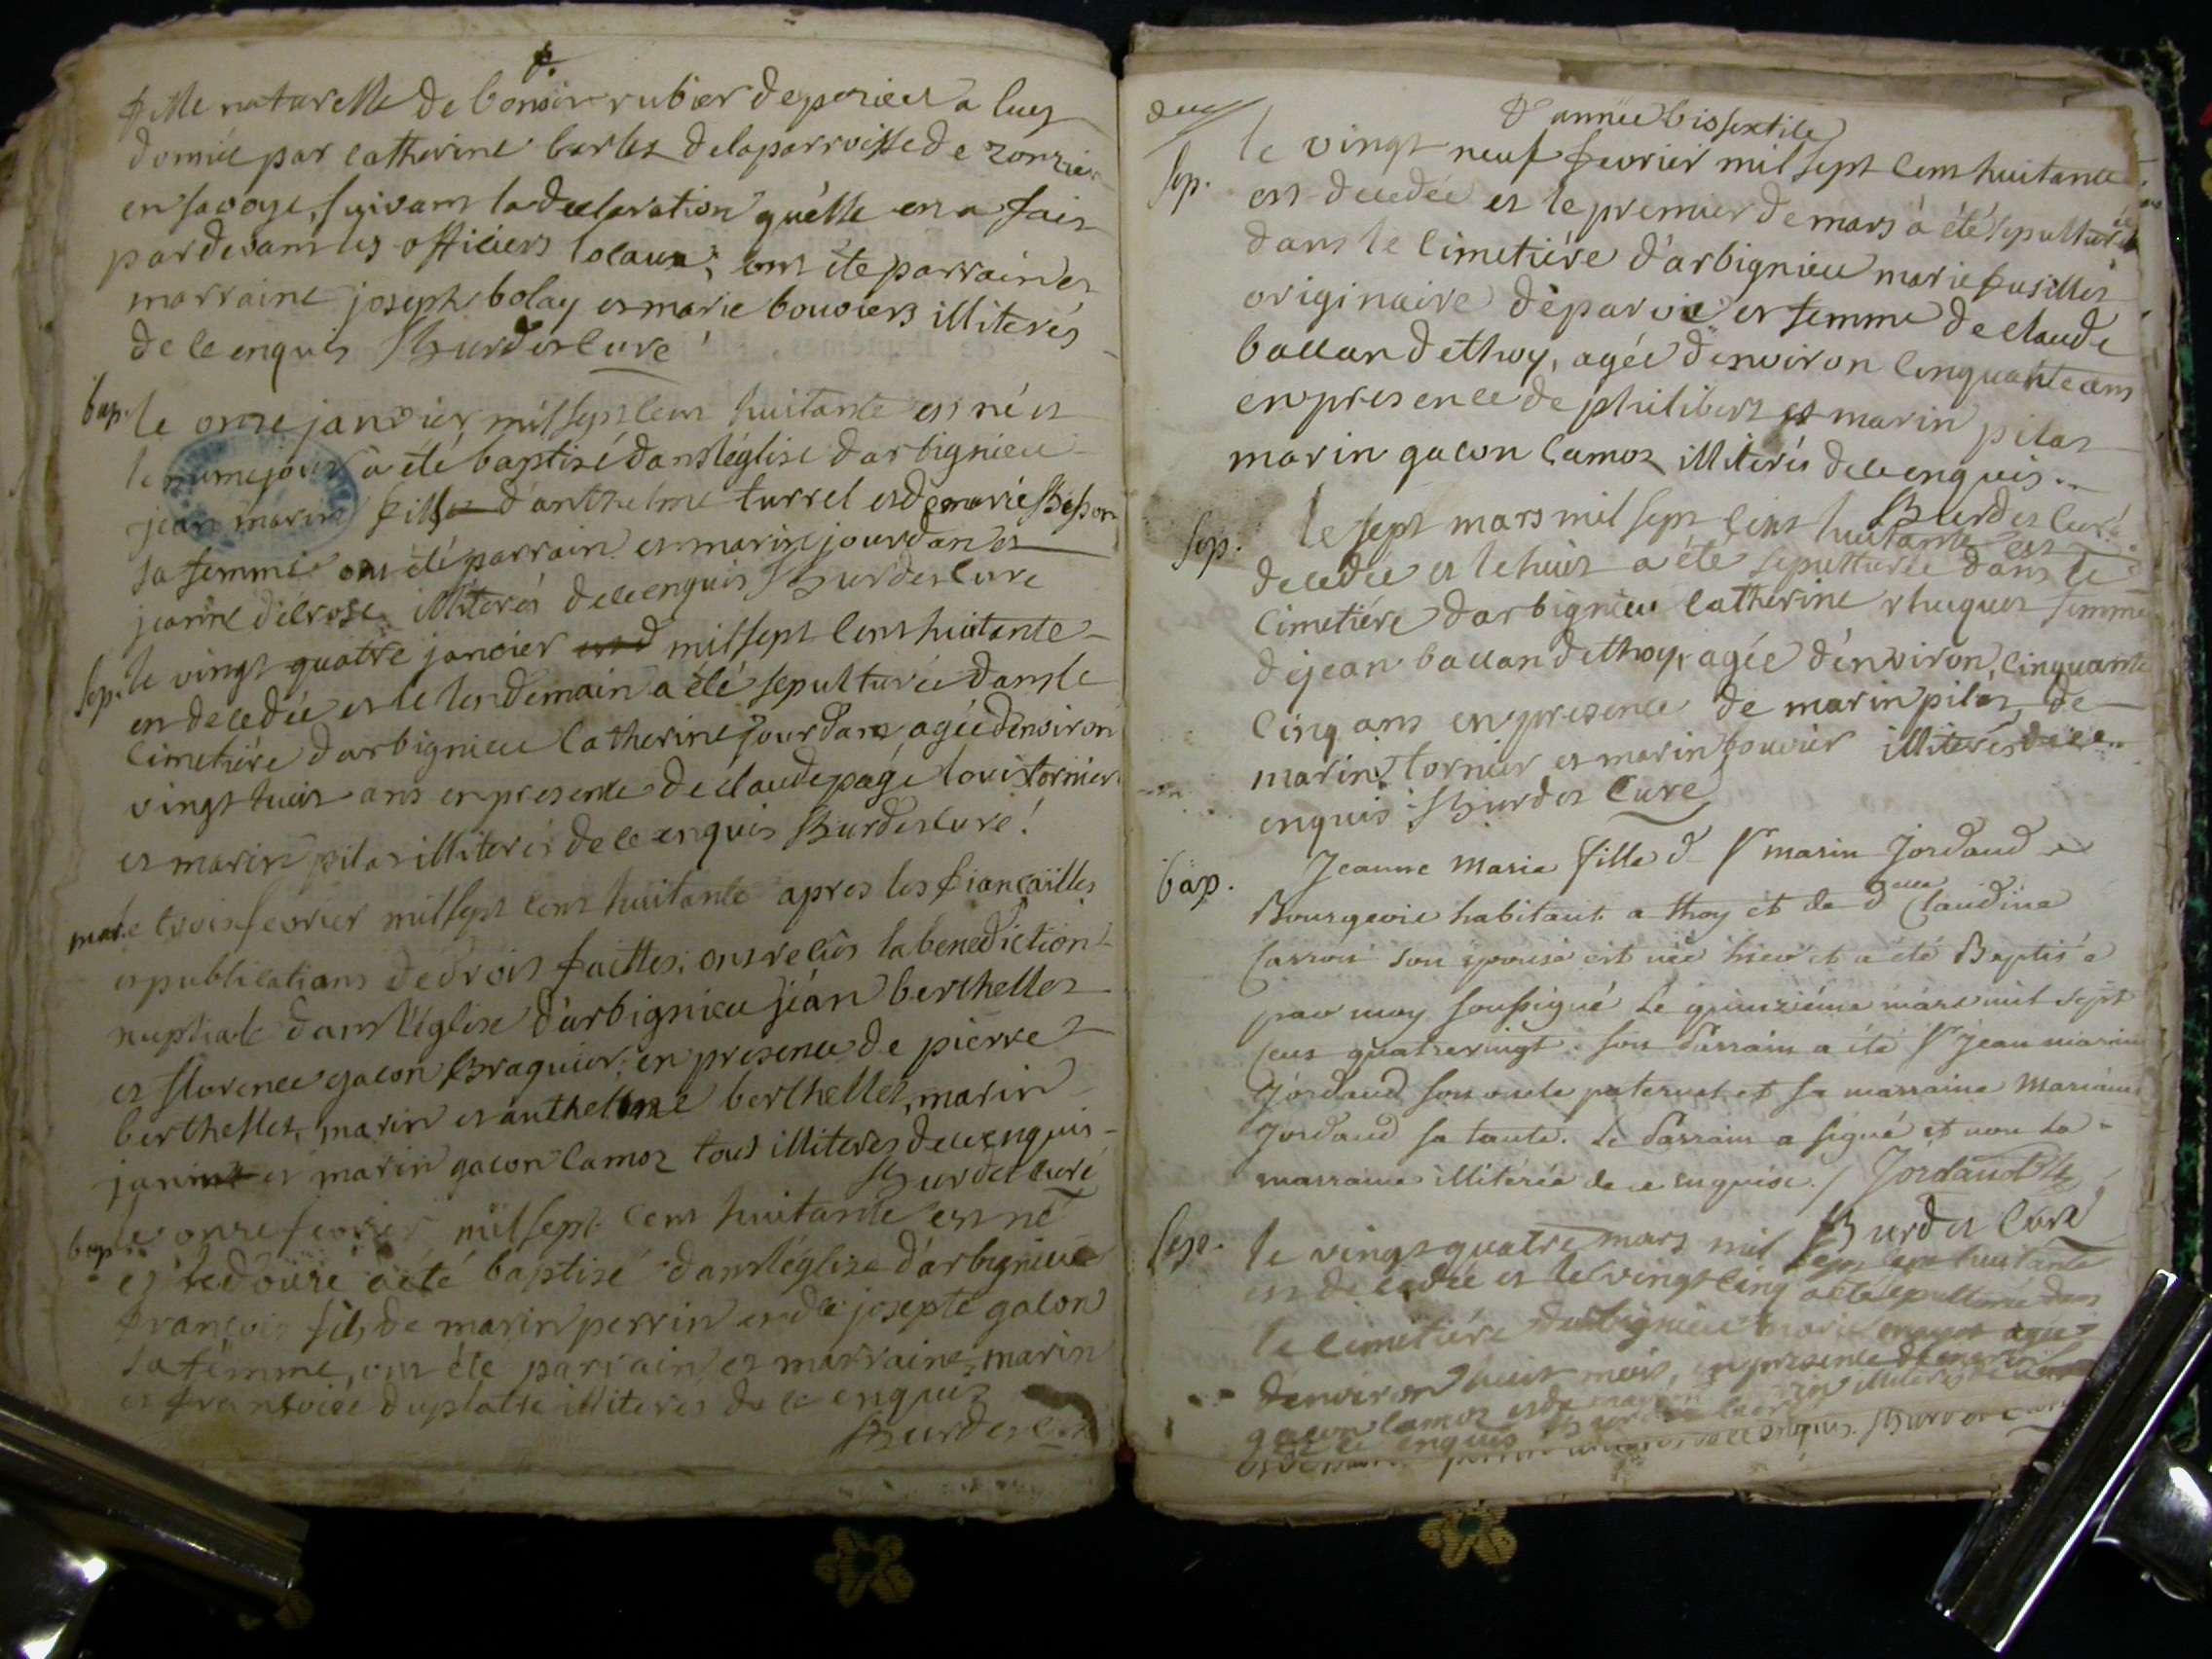 fille naturelle de benoir rubier de perieu a luy
donnée par catherine barlet de la parroisse de
en savoye, suivant la declaration qu'elle en a fait
pardevant les officiers locaux; ont été parrain et
marraine joseph bolay et marie bouviers illiterés
de ce enquis Burdet curé
bap. le onze janvier mil sept cent huitante est né et
le meme jour a été baptisé dans l'église d'arbignieu
jean marin fils d'anthelme turrel et de marie Besson
sa femme ont été parrain et marin jourdan et
jeanne illiterés de ce enquis Burdet cure
Sep. le vingt quatre janvier mil sept cent huitante
est decedée et le lendemain a été sepulturée dans le
cimetiére d'arbignieu catherine jourdan, agée d'environ
vingt huit ans en presence de claude page louis tornier
et marin pilat illiterés de ce enquis Burdet curé
mar. le trois fevrier mil sept cent huitante apres les fiançailles
et publications de drois faittes, ont reçus la benediction
nuptiale dans l'église d'arbignieu jéan berthellet
et florence gacon Braguier; en presence de pierre
berthellet, marin et anthelme berthellet, marin
janin et marin gacon camoz tous illiteres de ce enquis
Burdet curé
bap. le onze fevrier mil sept cent huitante est né
et le douze a été baptisé dans l'église d'arbignieu
françois fils de marin perrin et de josepte gacon
sa femme, ont été parrain et marraine, marin
et fransoise duplatre illiterés de ce enquis
Burdet
deux
d'année bissextile
Sep. le vingt neuf fevrier mil sept cent huitante
est decedée et le premier de mars a été sepulturée
dans le cimetiére d'arbignieu marie fusillet
originaire de parvie et femme de claude
baccan de thoy, agée d'environ cinquante ans
en presence de philibert et marin pilat
marin gacon camoz illiterés de ce enquis.
Burdet curé
Sep. le sept mars mil sept cent huitante est
decedée et le huit a été sepulturée dans le
cimetiére d'arbignieu catherine huguet femme
de jean baccan de thoy, agée d'environ cinquante
cinq ans en presence de marin pilat, de
marin tornier et marin bouvier illiterés de ce
enquis Burdet Curé
bap. Jeanne Marie fille d Sr marin Jordand
Bourgeois habitant a thoy et de delle Claudine
Carrou son épouse est née hier et a été Baptisée
par moy soussigné Le quinziéme mars mil sept
cens quatrevingt. son Parrain a été Sr Jean marin
Jordand son oncle paternel et sa marraine Marianne
Jordand sa tante. Le Parrain a signé et non la
marraine illitérée de ce enquise. / Jordand
Burdet Curé
Sep. le vingt quatre mars mil sept cent huitante
est decedée et le vingt cinq a été sepulturée dans
le cimetiére d'arbignieu marie agée
d'environ huit mois, en presence de marin
gacon camoz et de illiterés
de ce enquis
perrin de ce enquis. Burdet